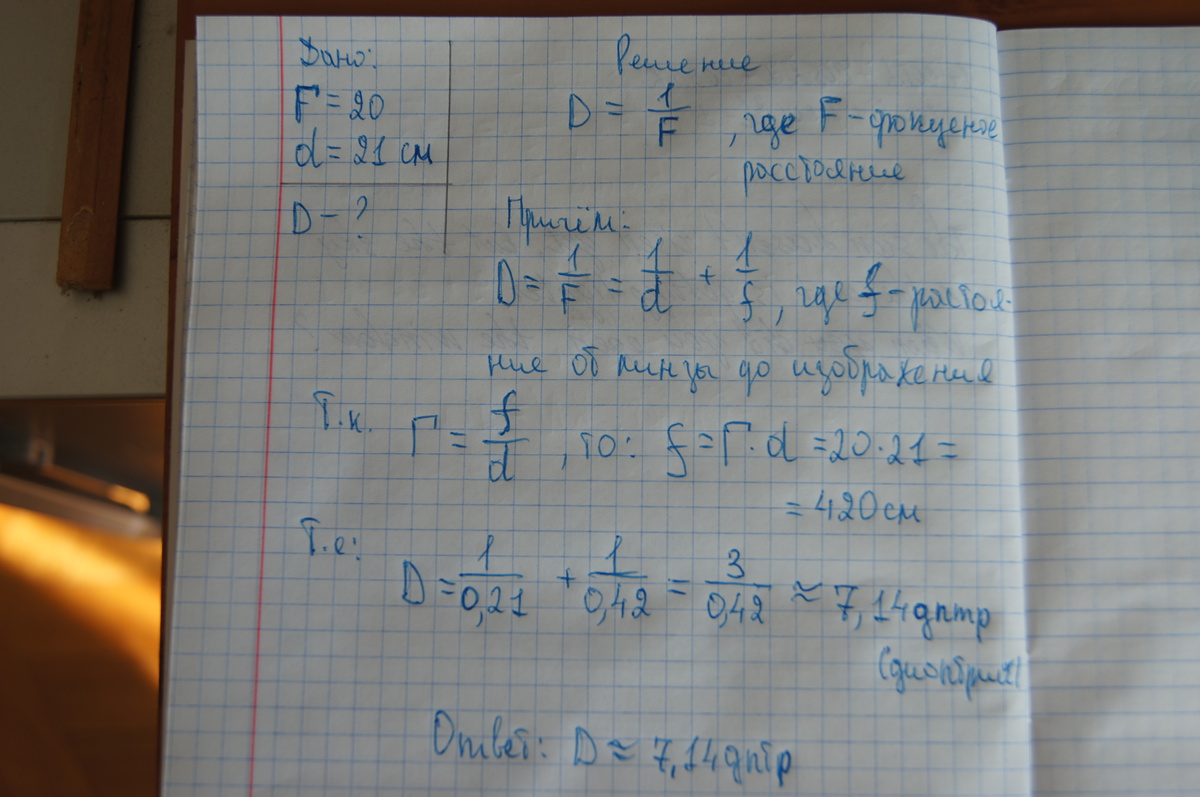 Дано:
Г = 20
d = 21 см
D - ?
Решение
D = 1/F , где F - фокусное
расстояние
Причём:
D = 1/F = 1/d + 1/f , где f - растоя-
ние от линзы до изображения
Т.к. Г = f/d , то: f = Г · d = 20 · 21 =
= 420 см
Т.е: D = 1/0,21 + 1/0,42 = 3/0,42 ≈ 7,14 дптр
(диоптрия)
Ответ: D ≈ 7,14 дптр